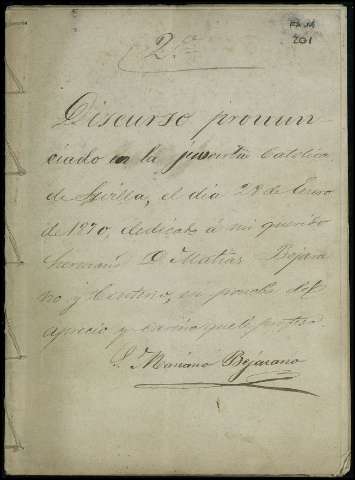 FA.M
201
2.º
Discurso pronun-
ciado en la juventud Católica
de Sevilla, el dia 28 de Enero
de 1870, dedicado á mi querido
hermano D Matías Bejara
no y Centeno, en prueba del
aprecio y cariño que le profesa.
S. Mariano Bejarano